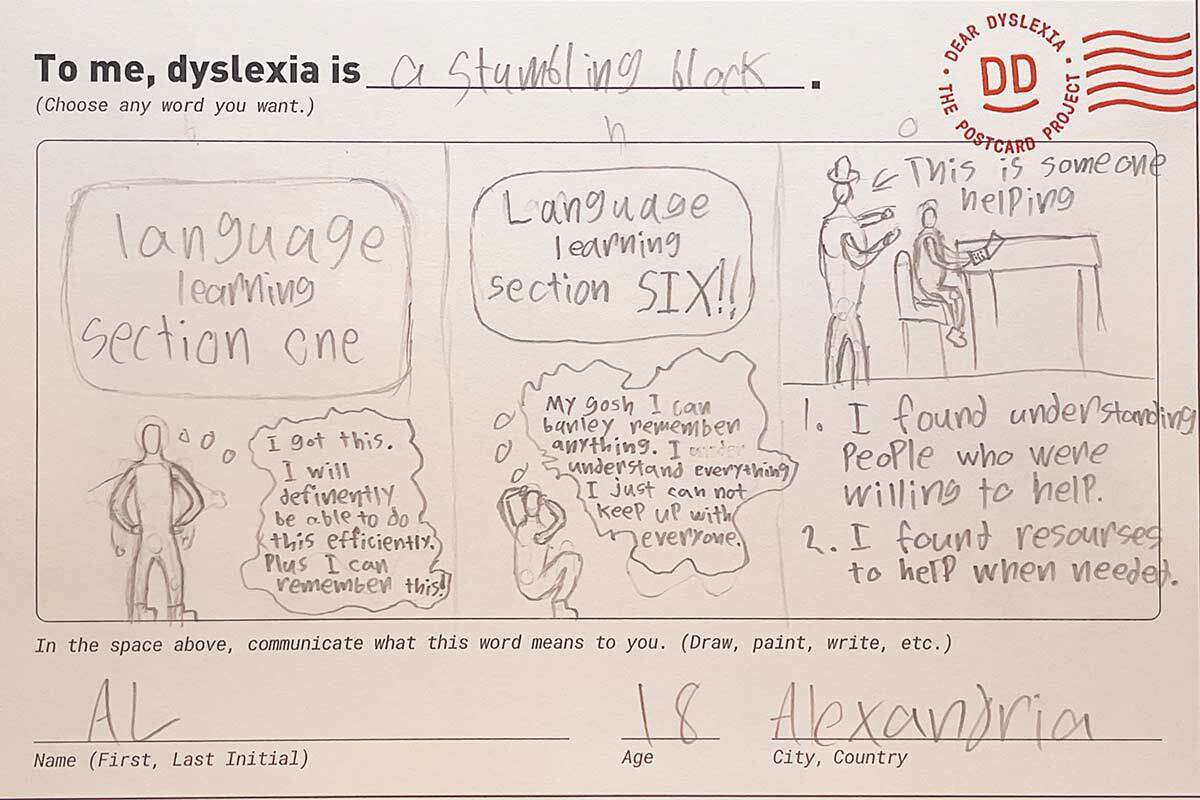 To me, dyslexia is a stumbling block.
(Choose any word you want.)
DEAR DYSLEXIA • THE POSTCARD PROJECT •
DD
h
o
language
learning
section one
I got this.
I will
definently
be able to do
this efficiently.
Plus I can
remember this!
Language
learning
section SIX!!
My gosh I can
barley remember
anything. I under
understand everything
I just can not
keep up with
everyone.
This is someone
helping
Hi
1. I found understanding
people who were
willing to help.
2. I found resourses
to help when needed.
In the space above, communicate what this word means to you. (Draw, paint, write, etc.)
AL
18
Alexandria
Name (First, Last Initial)
Age
City, Country